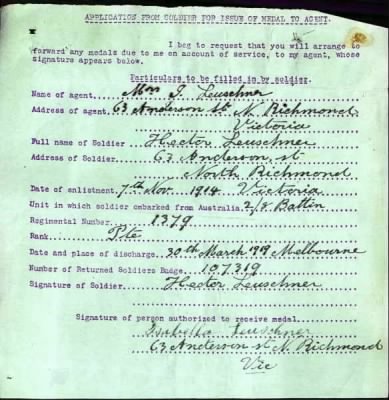 APPLICATION FROM SOLDIER FOR ISSUE OF MEDAL TO AGENT.
I beg to request that you will arrange to
forward any medals due to me on account of service, to my agent, whose
signature appears below.
Particulars to be filled in by soldier.
Name of agent Mrs I. Leuschner
Address of agent 63 Anderson St N. Richmond
Victoria
Full name of Soldier Hector Leuschner
Address of Soldier 63 Anderson st
North Richmond
Date of enlistment 7th Nov. 1914 Victoria
Unit in which soldier embarked from Australia 2/8 Battln
Regimental Number 1379
Rank Pte
Date and place of discharge 30th March 1919 Melbourne
Number of Returned Soldiers Badge 107319
Signature of Soldier Hector Leuschner
Signature of person authorized to receive medal
Isabella Leuschner
63 Anderson st N. Richmond
Vic